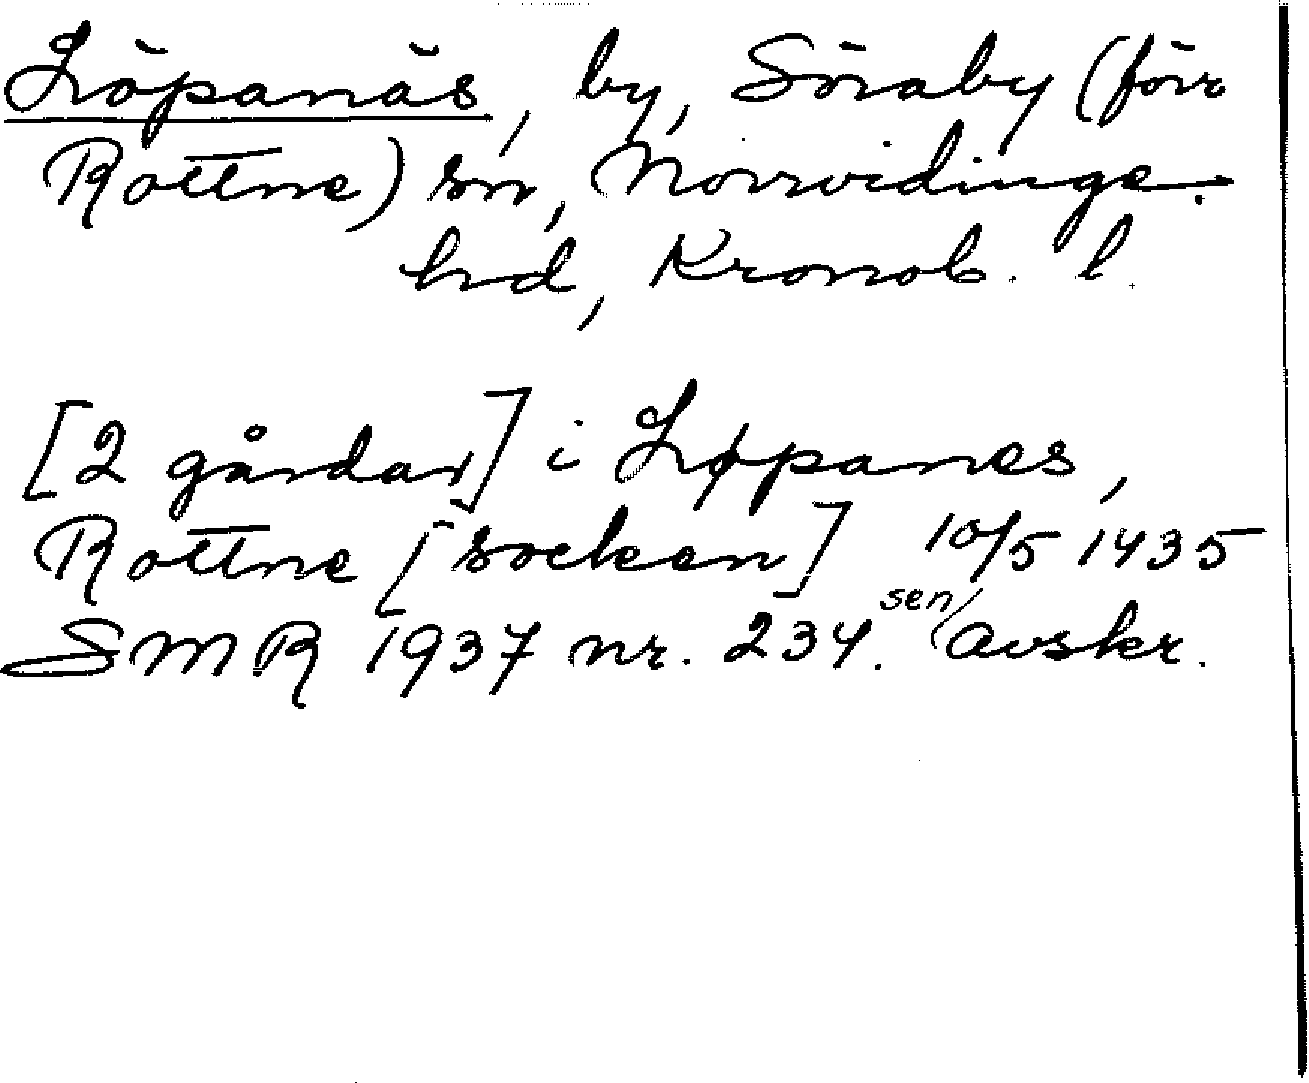 Löpanäs, by, Söraby (förr
Rottne) sn, Norrvidinge
hd, Kronob. l.
[2 gårdar] i Løpanes,
Rottne [socken] 10/5 1435
SMR 1937 nr. 234. sen avskr.